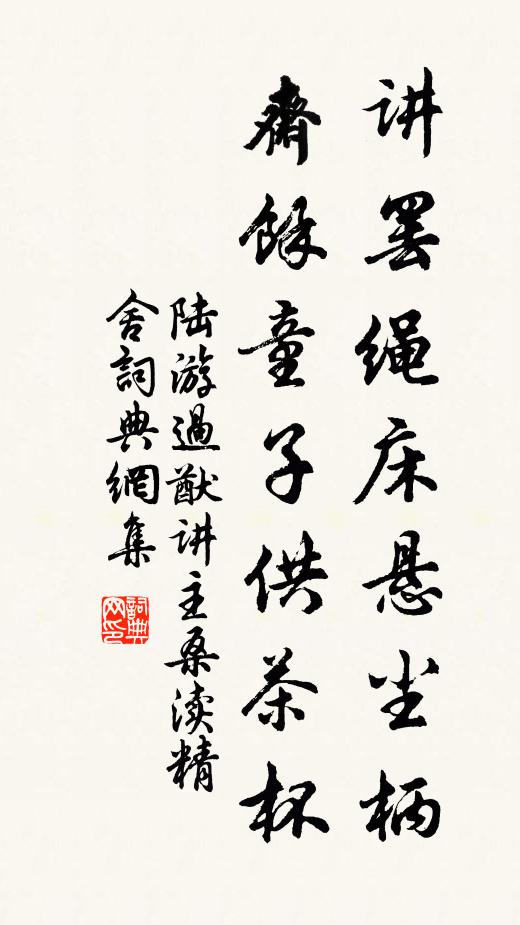 讲罢绳床悬尘柄
齋餘童子供茶杯
陆游過猷讲主桑渎精
舍詞典網集
詞典网印